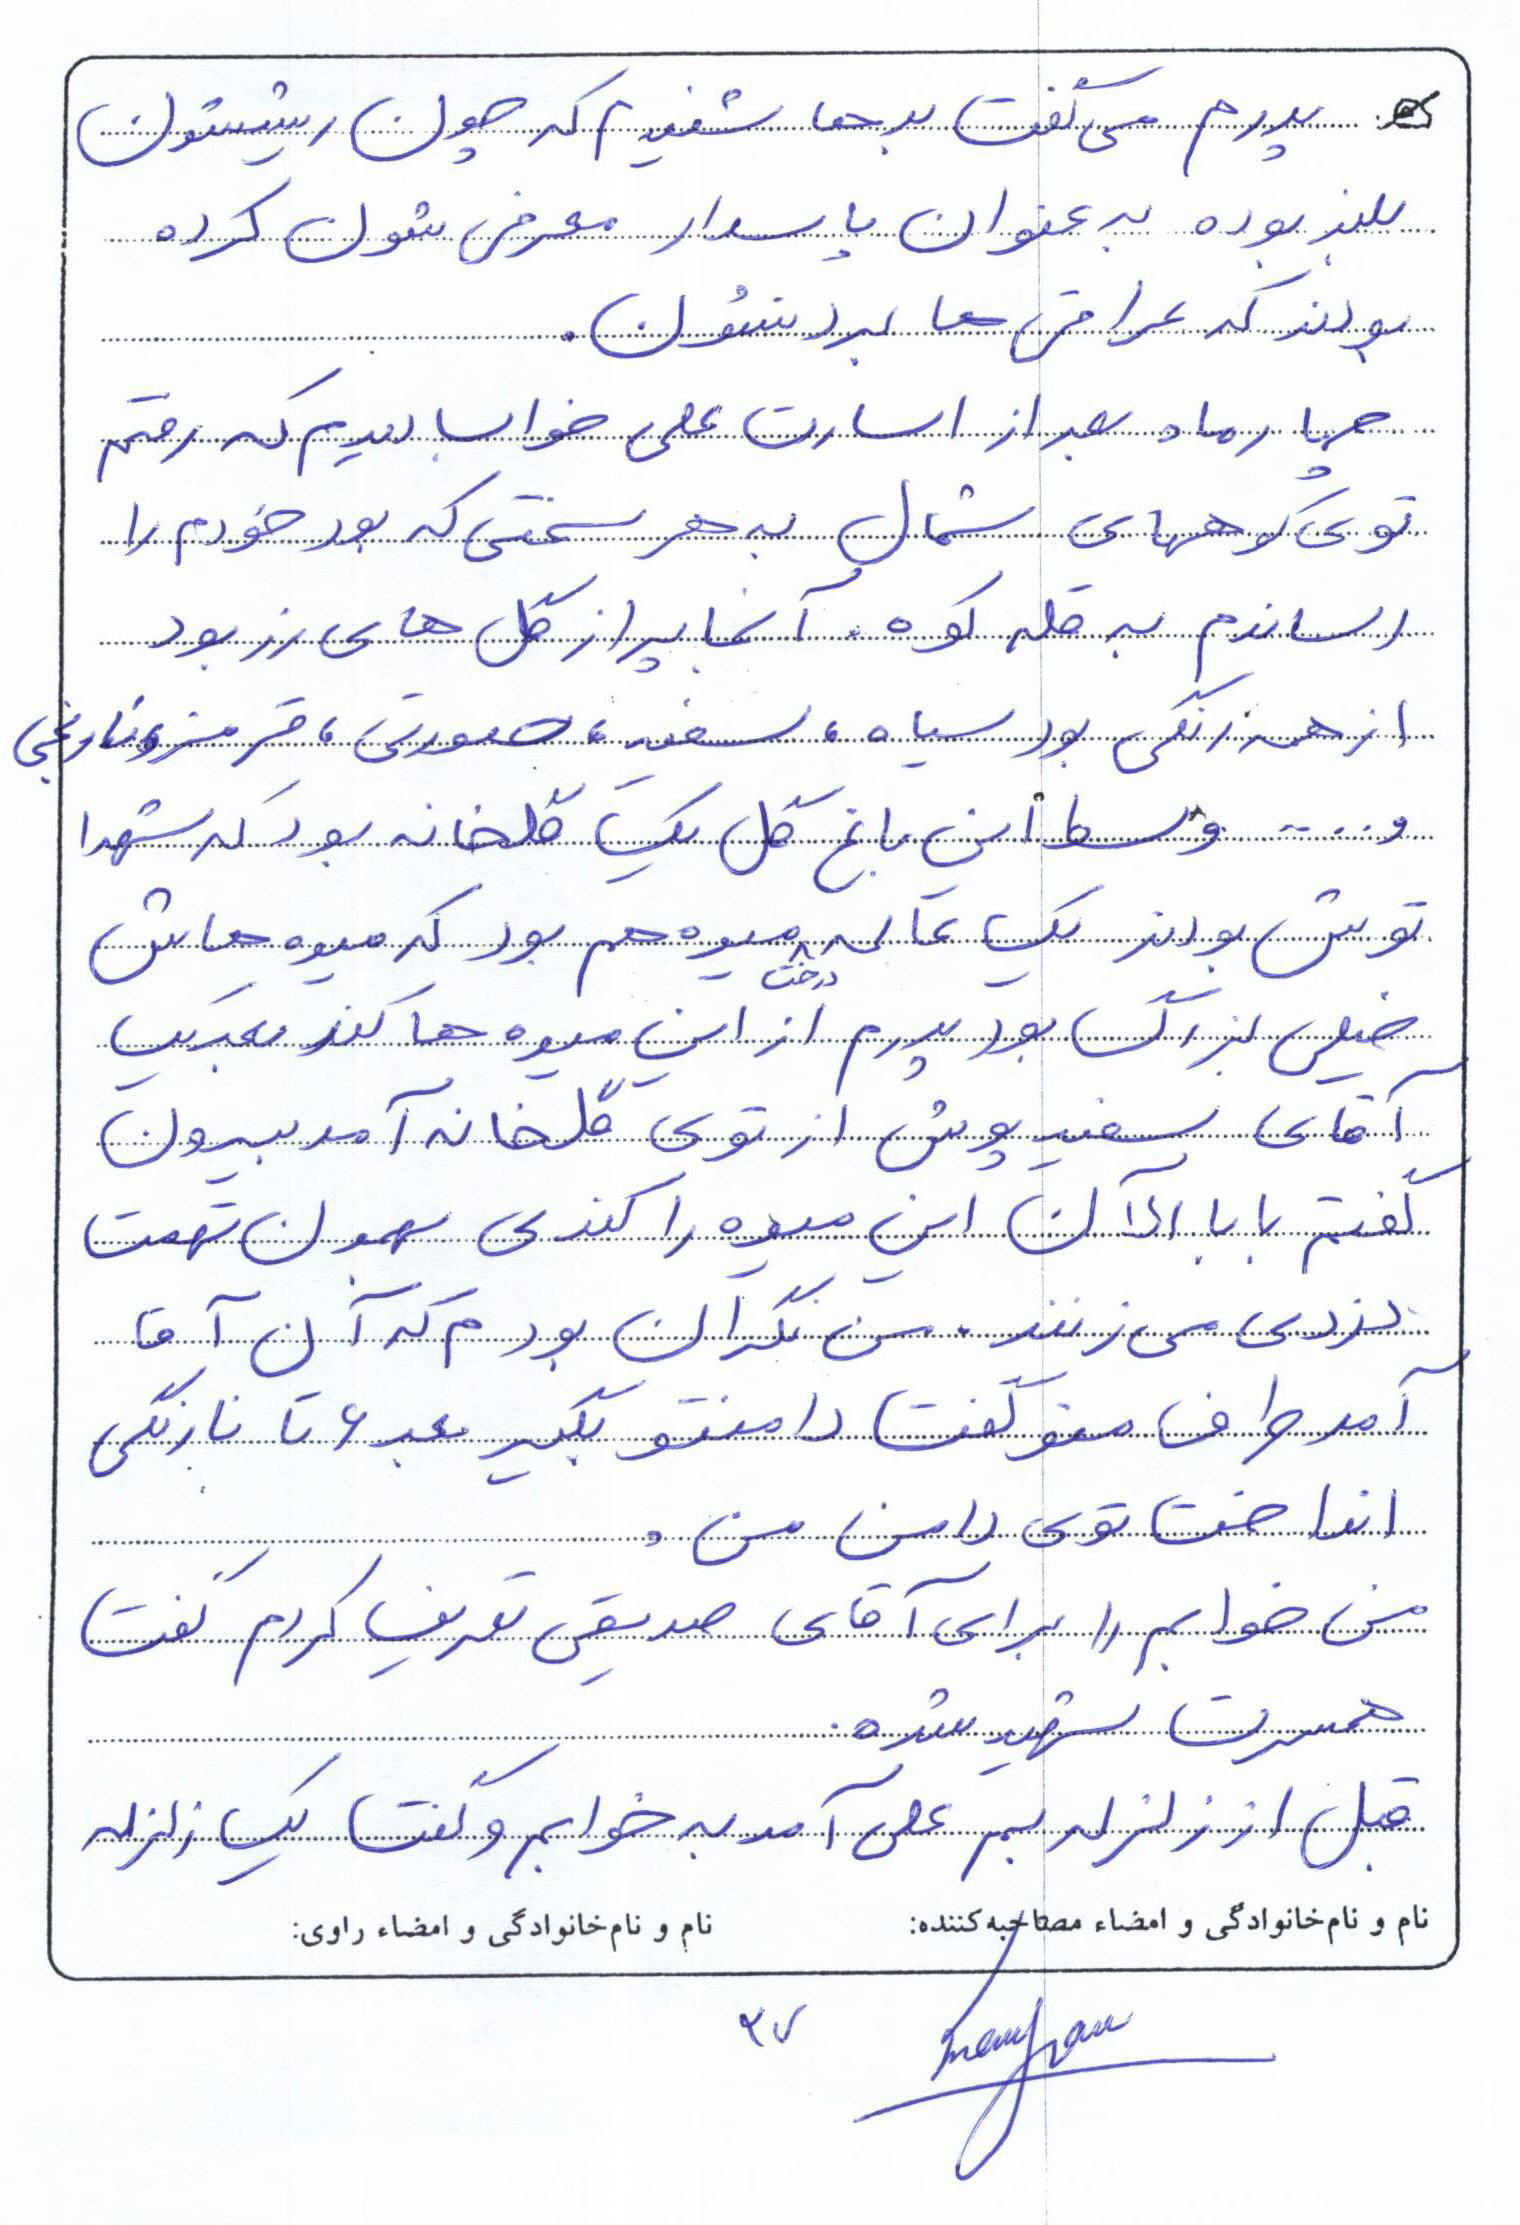 پدرم می‌گفت بدجا شنیدیم که چون ریششون
بلند بوده به عنوان پاسدار معرفی شون کرده
بودند که عراقی ها بردنشون.
چهار ماه بعد از اسارت علی خواب دیدم که رفتم
توی کوههای شمال به هر سختی که بود خودم را
رساندم به قله کوه. آنجا پر از گل های رز بود
از همه رنگی بود سیاه، سفید، صورتی، قرمز و نارنجی
و.... وسط این باغ گل یک گلخانه بود که شهدا
توش بودند یک عالمه درخت میوه هم بود که میوه هاش
خیلی بزرگ بود پدرم از این میوه ها کند بعد یک
آقای سفید پوش از توی گلخانه آمد بیرون
گفتم بابا الآن این میوه را کندی بهمون تهمت
دزدی می زنند. من نگران بودم که آن آقا
آمد طرف منو گفت دامنتو بگیر بعد ۶ تا نارنگی
انداخت توی دامن من.
من خوابم را برای آقای صدیقی تعریف کردم گفت
همسرت شهید شده.
قبل از زلزله بم علی آمد به خوابم و گفت یک زلزله
نام و نام‌خانوادگی و امضاء مصاحبه‌کننده: نام و نام‌خانوادگی و امضاء راوی:
۳۷